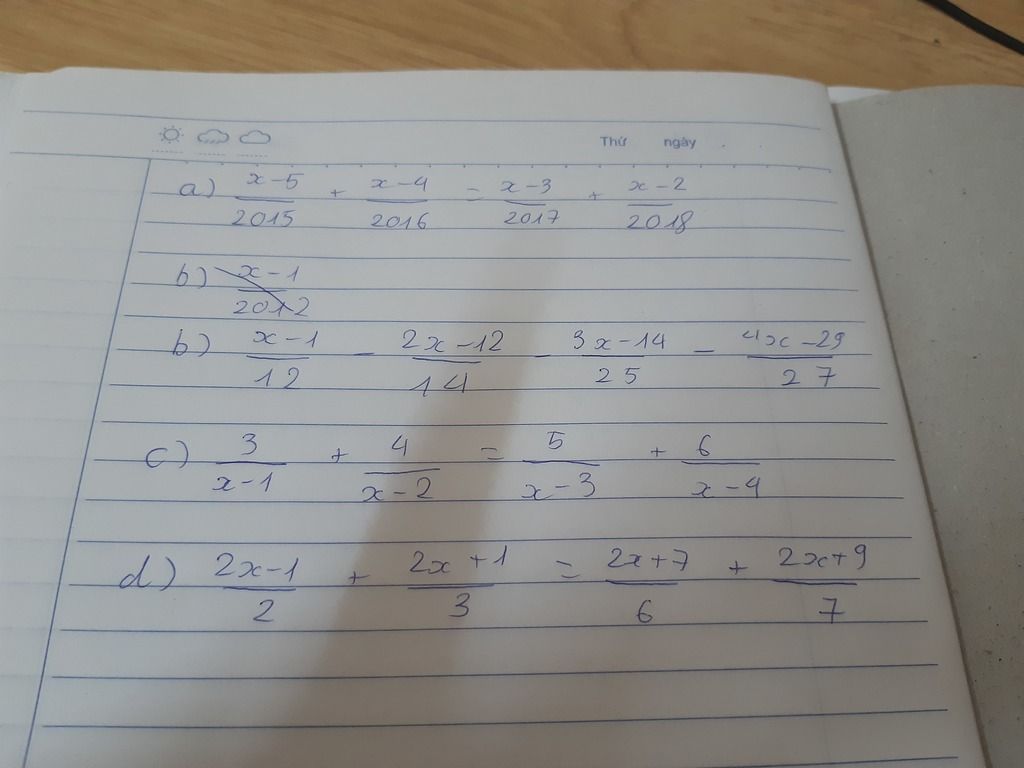 Thứ ngày
a) x-5/2015 + x-4/2016 = x-3/2017 + x-2/2018
b) x-1/2012
b) x-1/12 - 2x-12/14 - 3x-14/25 - 4x-29/27
c) 3/x-1 + 4/x-2 = 5/x-3 + 6/x-4
d) 2x-1/2 + 2x+1/3 = 2x+7/6 + 2x+9/7